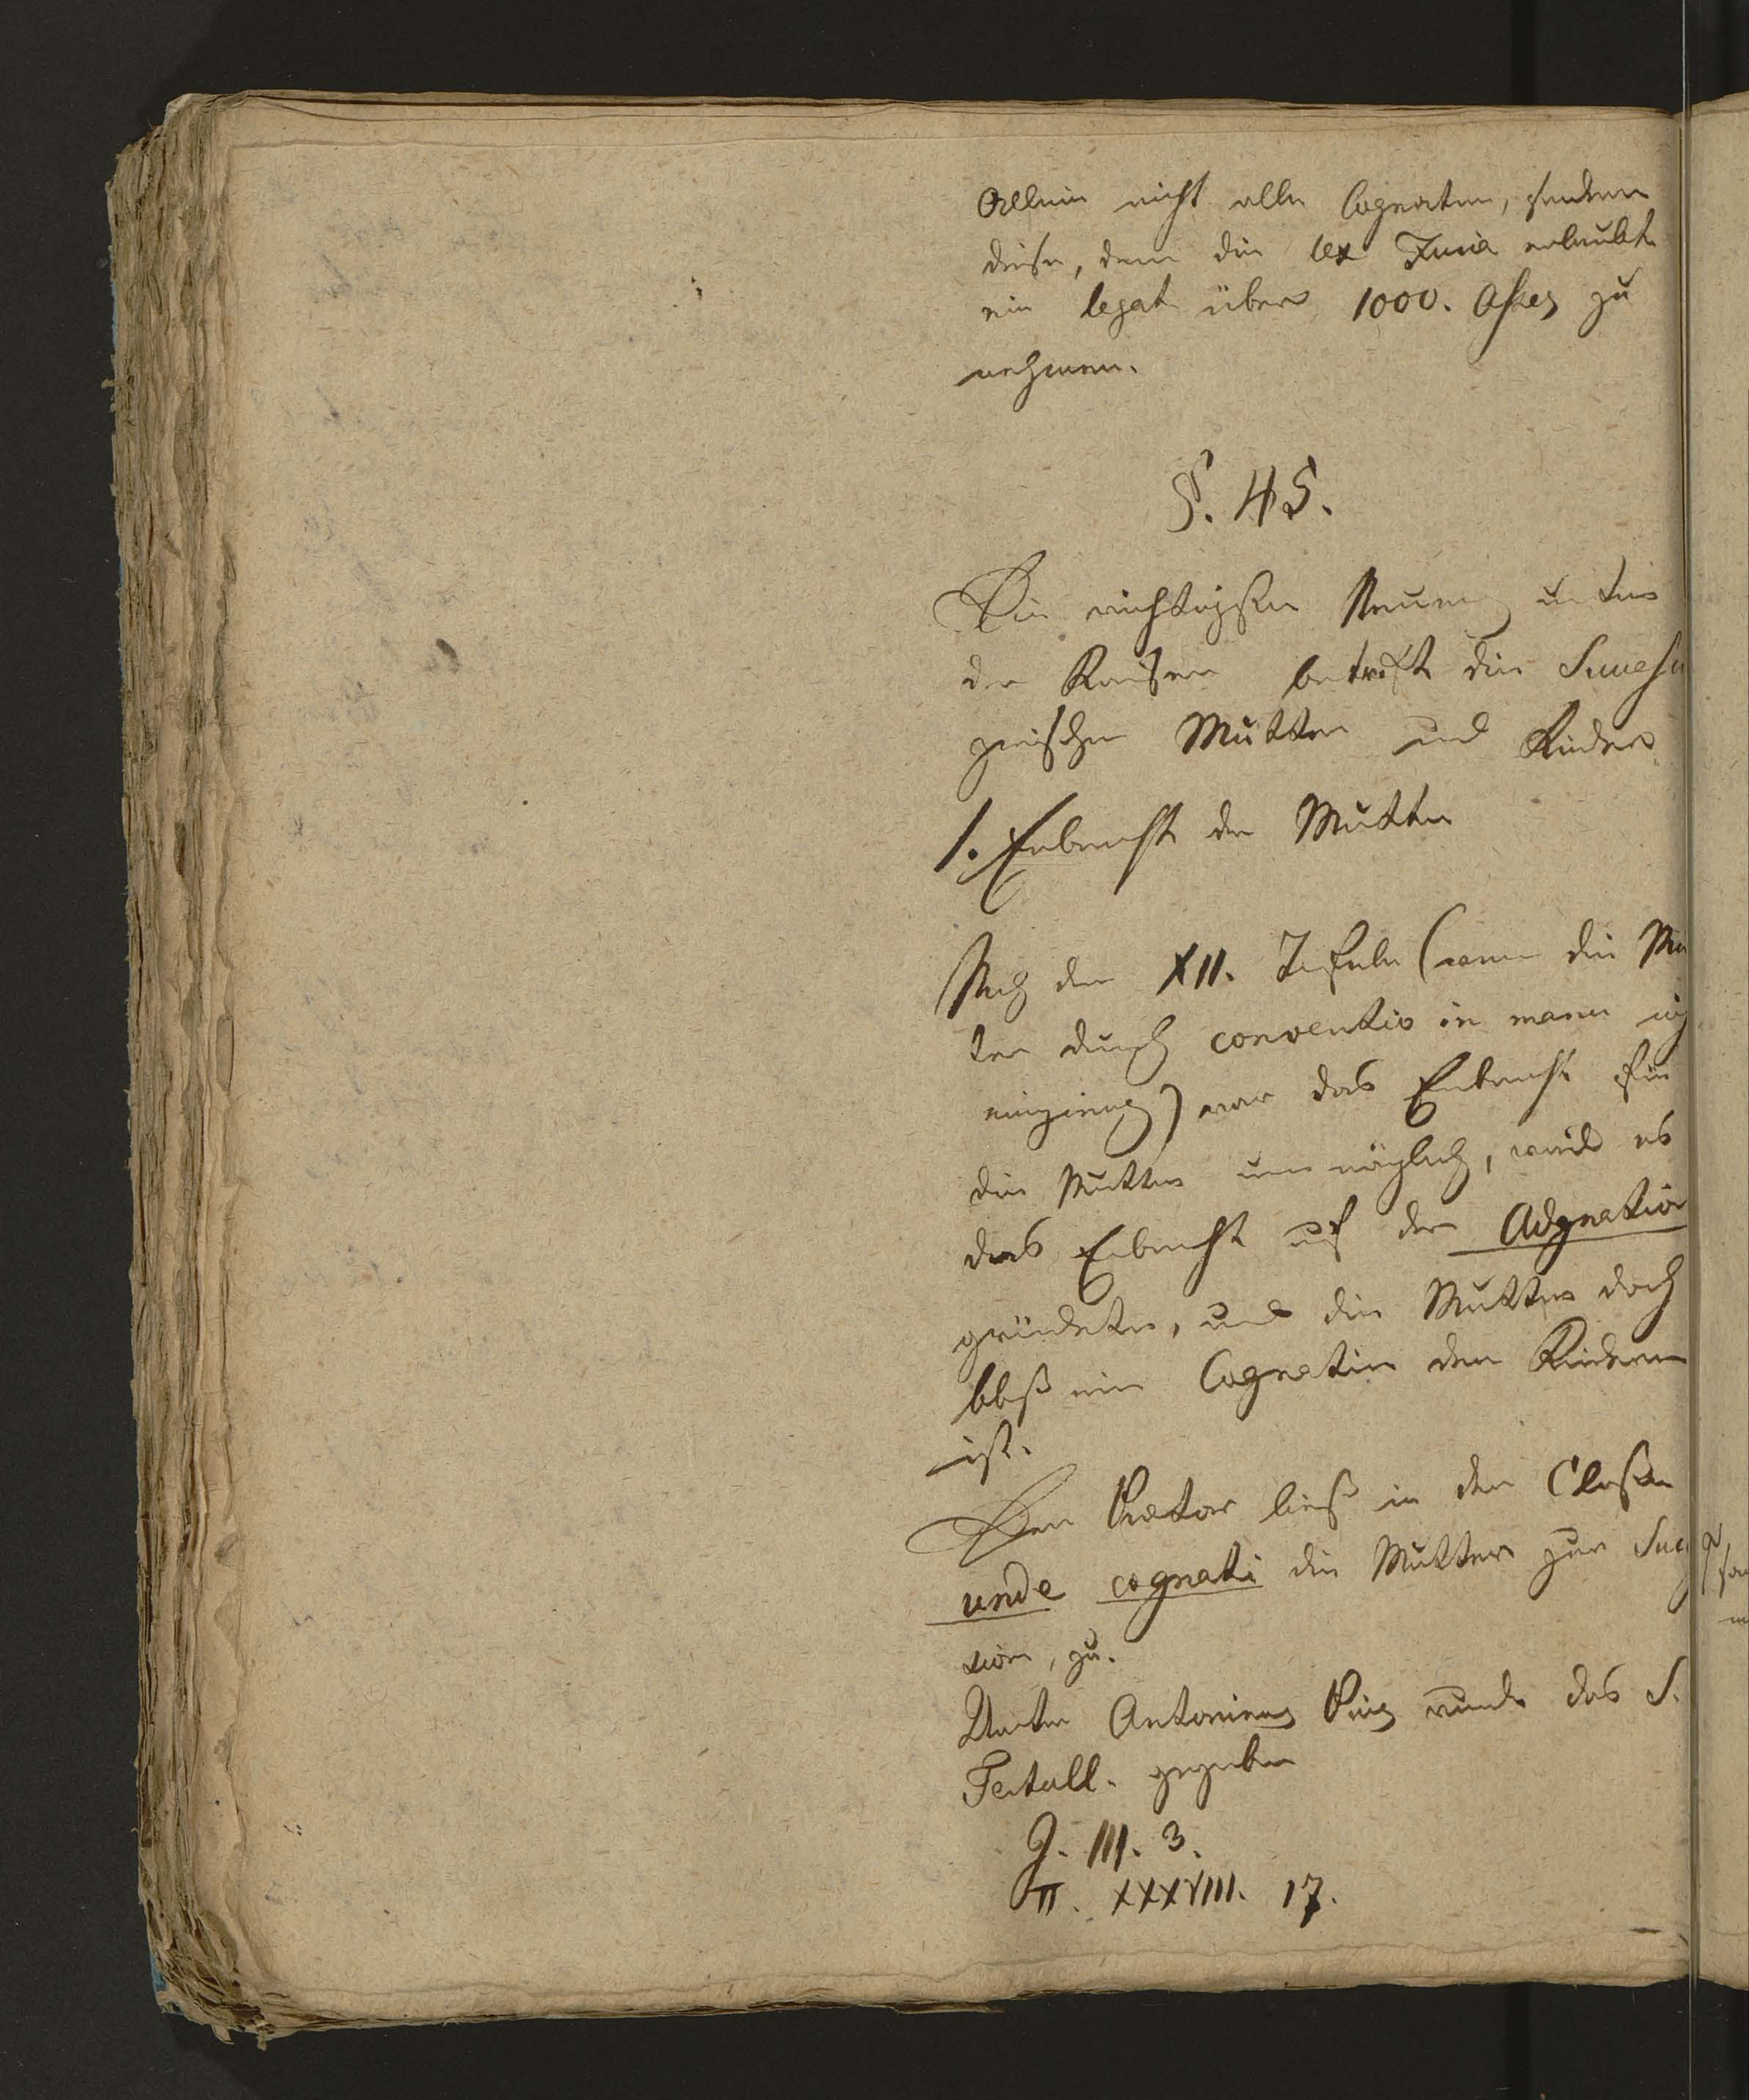 Allein nicht alle Cognaten, sondern
diese, denen die lex Furia erlaubte
ein legat über 1000. Asses zu
nehmen.
§. 45.
Die wichtigste Neuerung unter
den Kaisern betrift die Successi
zwischen Mutter und Kinder.
1. Erbrecht der Mutter
Nach den XII. Tafeln (wenn die Mu
ter durch conventio in manu nich
einging) war das Erbrecht für
die Mutter unmöglich, weil es
das Erbrecht auf der Adgnation
gründete, und die Mutter doch
bloß eine Cognatin den Kindern
ist.
Der Praetor ließ in der Classe
unde cognati die Mutter zur Suc
sion, zu.
Unter Antoninus Pius wurde das S.
Tertull. gegeben
J. III. 3.
π. XXXVIII. 17.